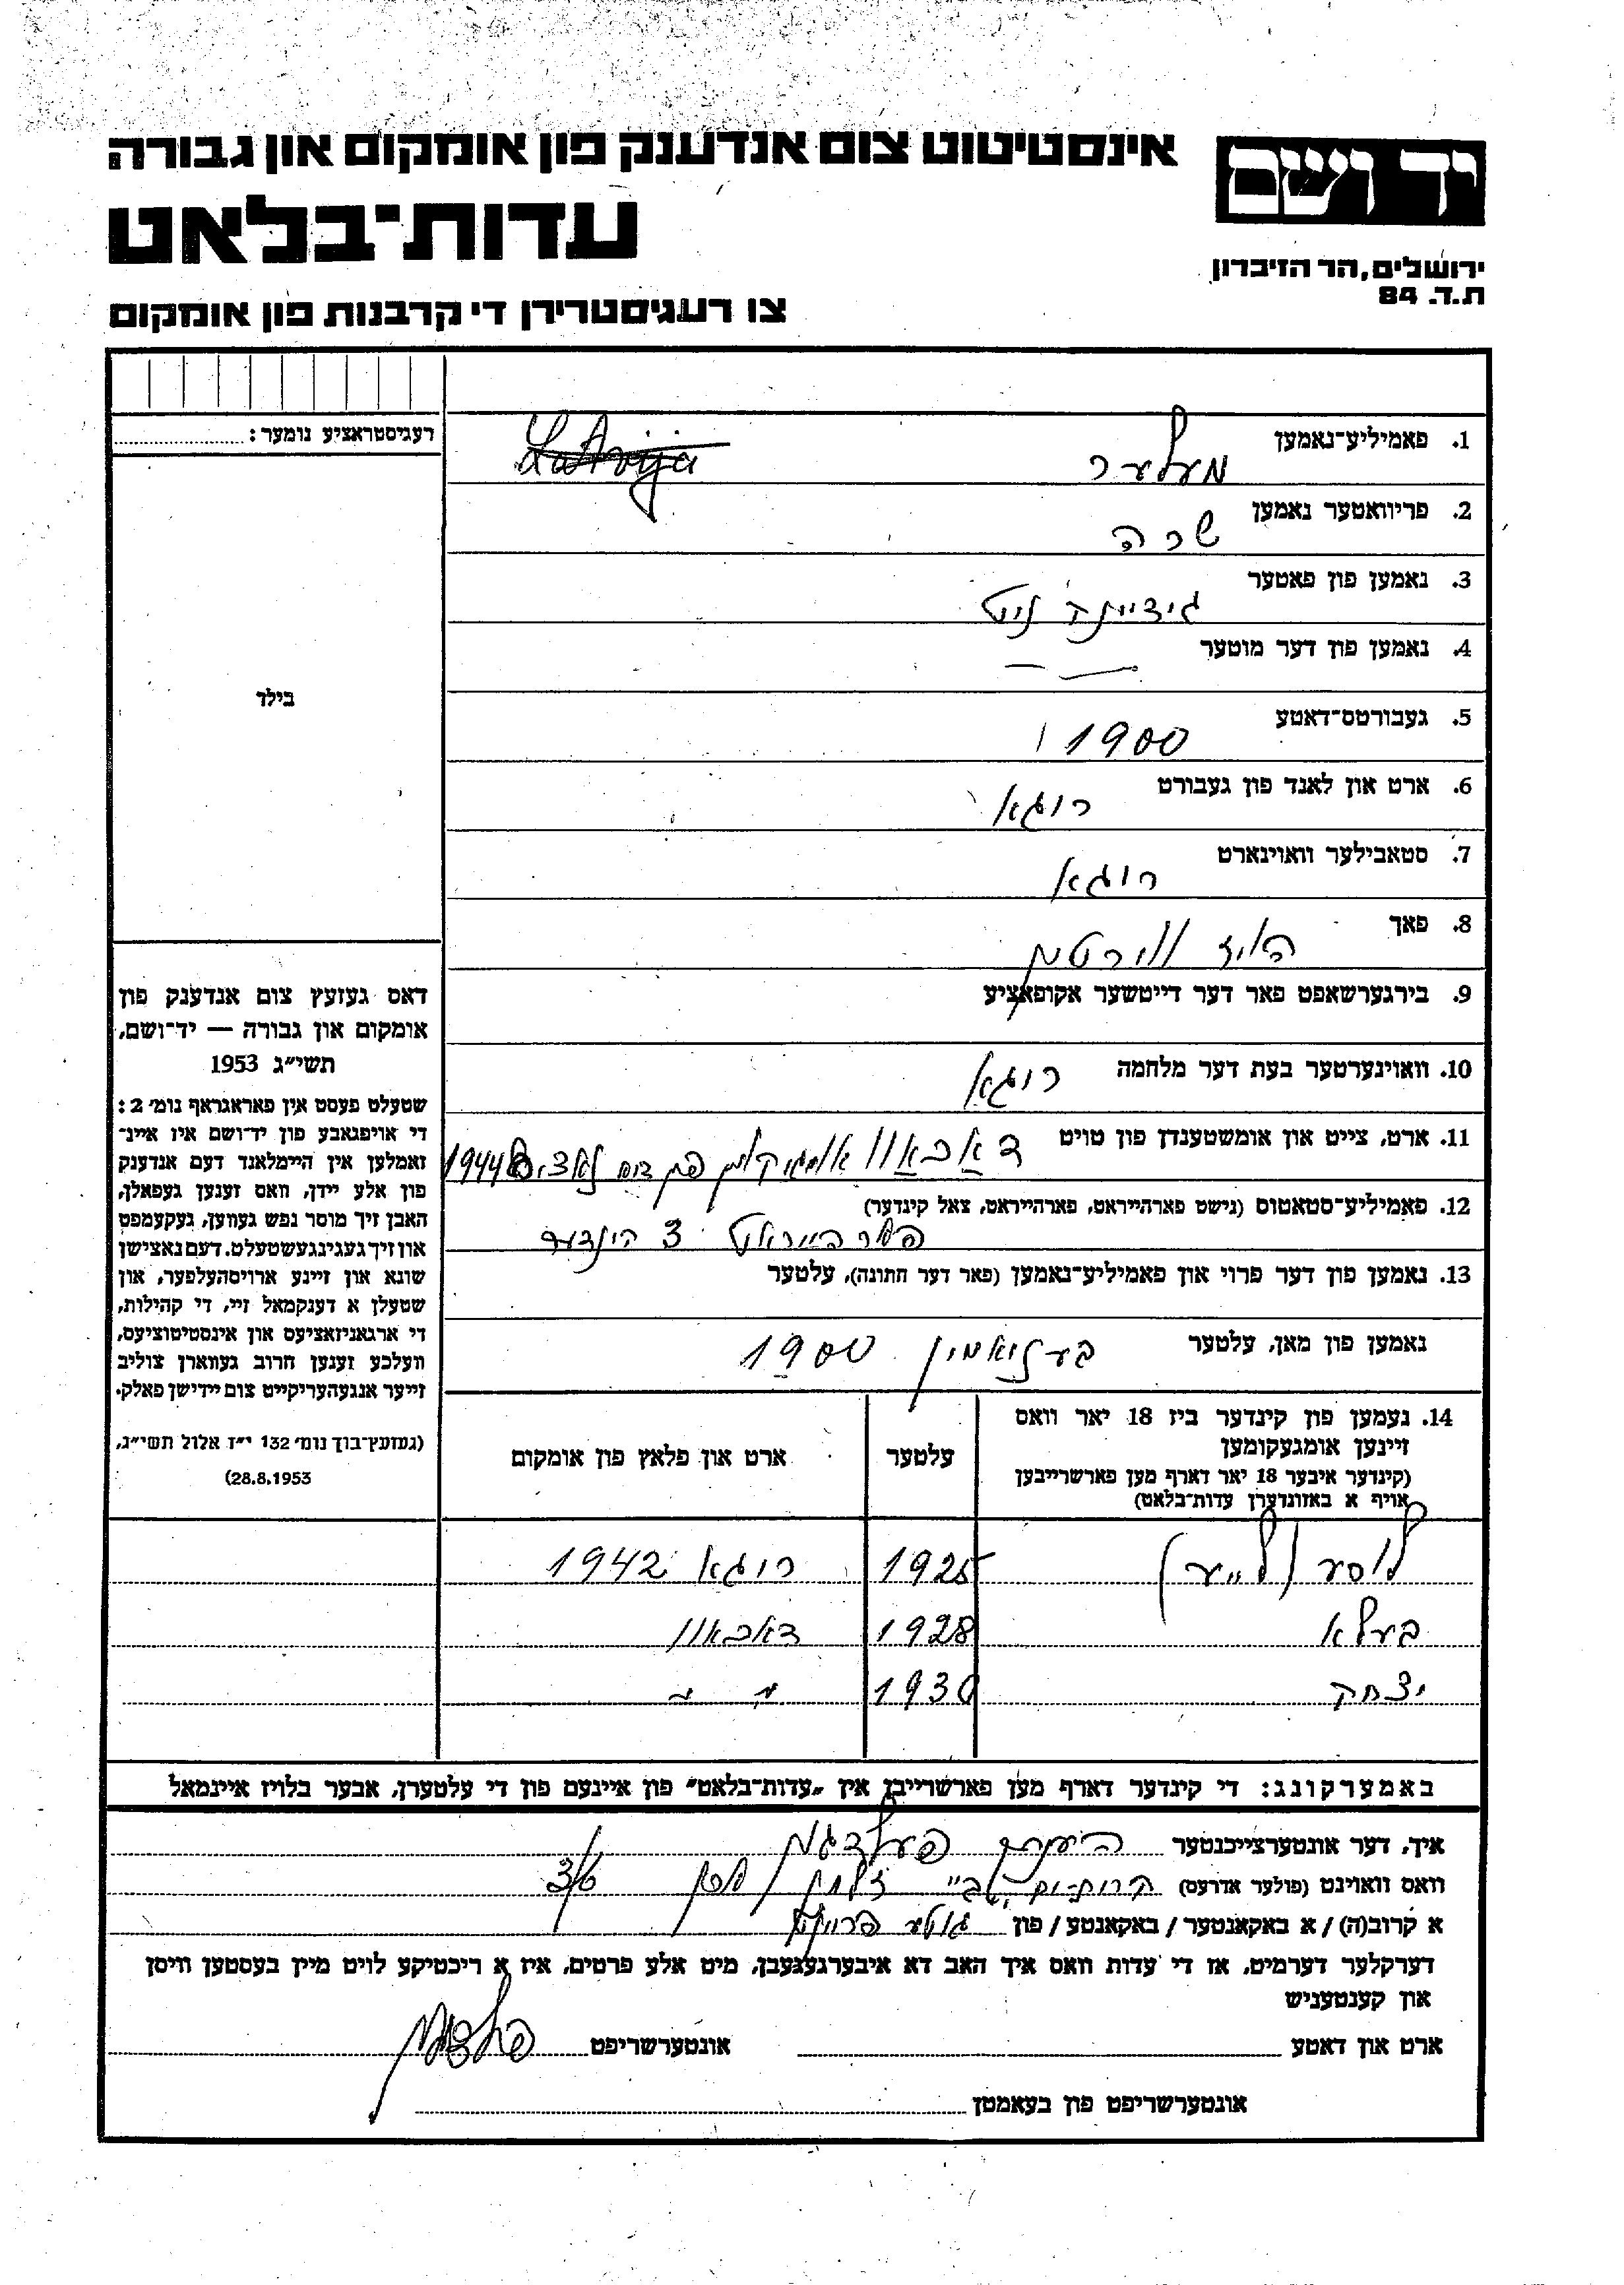 אינסטיטוט צום אנדענק פון אומקום און גבורה
יד ושם
עדות־בלאט
ירושלים, הר הזיכרון
ת.ד. 84
צו רעגיסטרירן די קרבנות פון אומקום
רעגיסטראציע נומער:
בילד
דאס געזעץ צום אנדענק פון
אומקום און גבורה — יד־ושם,
תשי״ג 1953
שטעלט פעסט אין פאראגראף נומ׳ 2:
די אויפגאבע פון יד־ושם איז איינ־
זאמלען אין היימלאנד דעם אנדענק
פון אלע יידן, וואס זענען געפאלן,
האבן זיך מוסר נפש געווען, געקעמפט
און זיך געגינגעשטעלט. דעם נאצישן
שונא און זיינע ארויסהעלפער, און
שטעלן א דענקמאל זיי, די קהילות,
די ארגאניזאציעס און אינסטיטוציעס,
וועלכע זענען חרוב געווארן צוליב
זייער אנגעהעריקייט צום יידישן פאלק.
(געזעץ־בוך נומ׳ 132 י״ז אלול תשי״ג,
28.8.1953)
1. פאמיליע־נאמען מעלער Latvija
2. פריוואטער נאמען שרה
3. נאמען פון פאטער
4. נאמען פון דער מוטער — —
5. געבורטס־דאטע 1900
6. ארט און לאנד פון געבורט ריגא
7. סטאבילער וואוינארט ריגא
8. פאך הויז ווירטין
9. בירגערשאפט פאר דער דייטשער אקופאציע
10. וואוינערטער בעת דער מלחמה ריגא
11. ארט, צייט און אומשטענדן פון טויט דאכאוו אומגעקומען 1944
12. פאמיליע־סטאטוס (נישט פארהייראט, פארהייראט, צאל קינדער)
פארהייראט 3 קינדער
13. נאמען פון דער פרוי און פאמיליע־נאמען (פאר דער חתונה), עלטער
נאמען פון מאן, עלטער בעניאמין 1900
14. נעמען פון קינדער ביז 18 יאר וואס
זיינען אומגעקומען
(קינדער איבער 18 יאר דארף מען פארשרייבען
אויף א באזונדערן עדות־בלאט)
עלטער
ארט און פלאץ פון אומקום
1925 ריגא 1942
בעלא 1928 דאכאוו
יצחק 1930 " "
באמערקונג: די קינדער דארף מען פארשרייבן אין „עדות־בלאט״ פון איינעם פון די עלטערן, אבער בלויז איינמאל
איך, דער אונטערצייכנטער פעלדמן
וואס וואוינט (פולער אדרעס) קרית־ים
א קרוב(ה) / א באקאנטער / באקאנטע / פון
דערקלער דערמיט, אז די עדות וואס איך האב דא איבערגעגעבן, מיט אלע פרטים, איז א ריכטיקע לויט מיין בעסטען וויסן
און קענטעניש
ארט און דאטע אונטערשריפט
אונטערשריפט פון בעאמטן